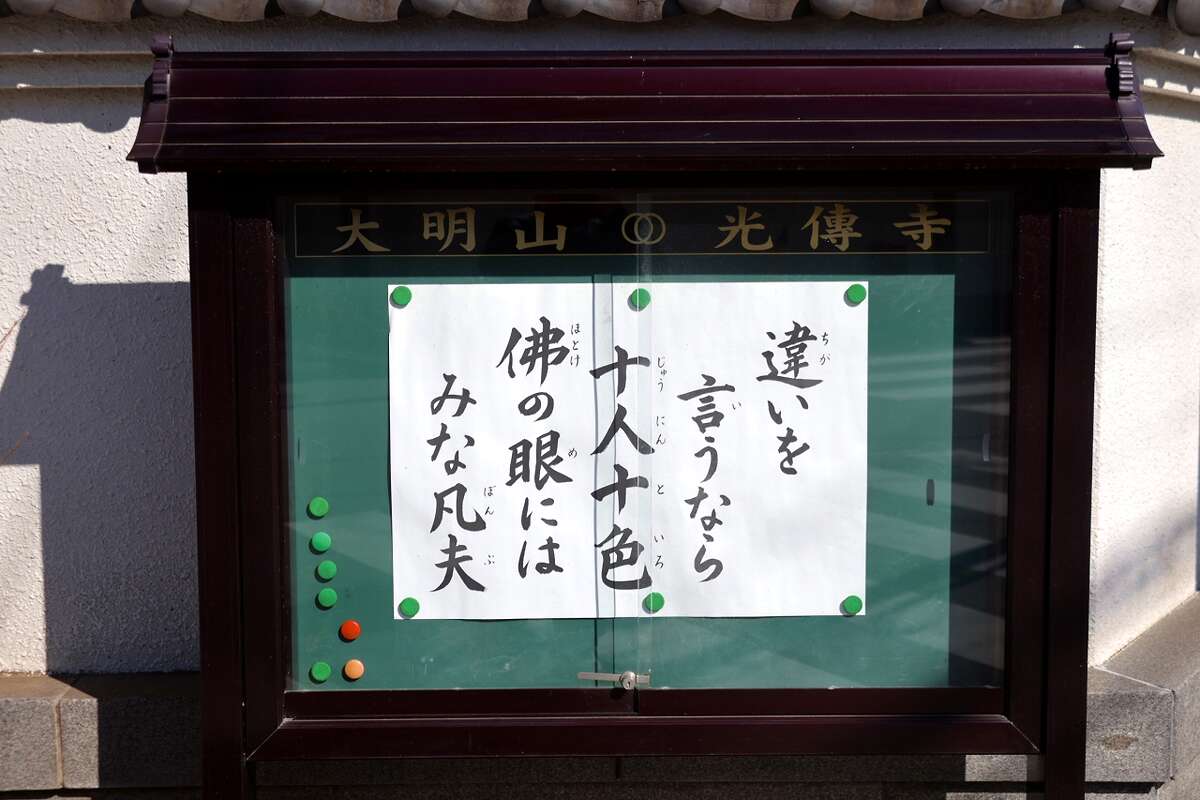 大明山 光傳寺
違いを
ちが
言うなら
い
十人十色
じゅうにんといろ
佛の眼には
ほとけ め
みな凡夫
ぼんぶ